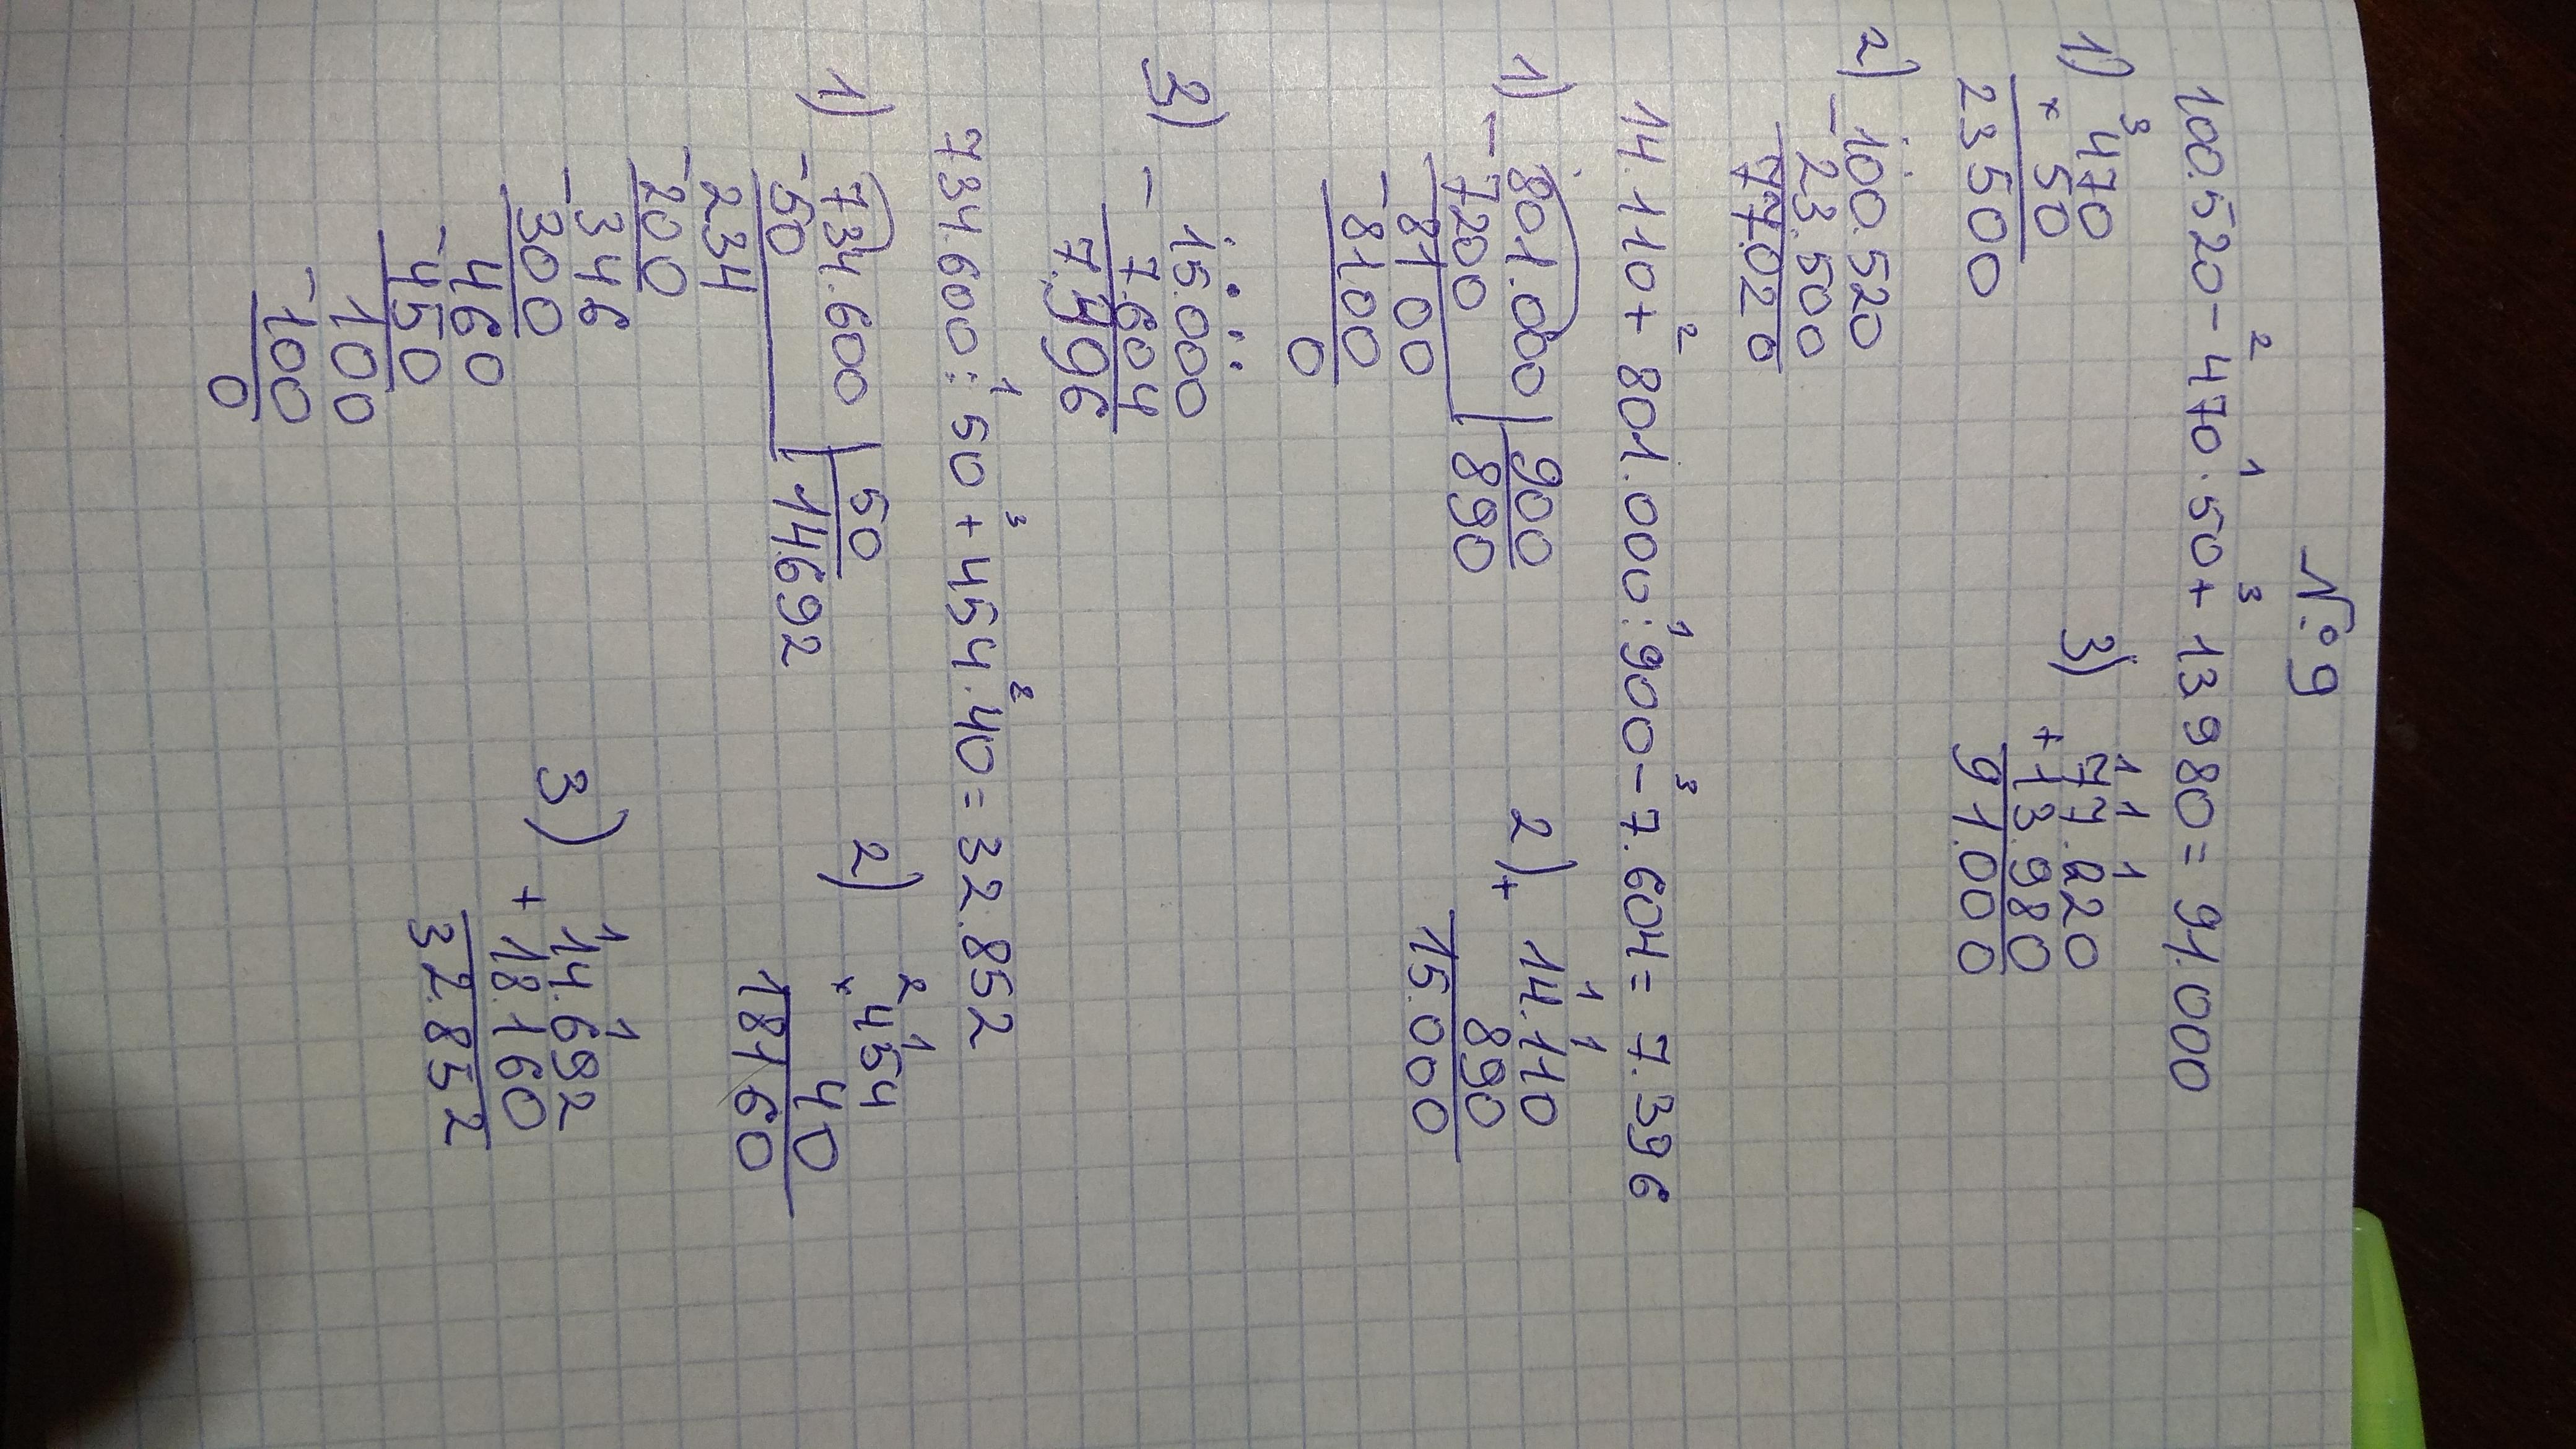 N.º 9
100.520 - 470 · 50 + 13 980 = 91.000
2 1 3
1) 3 3)
470 1 1 1
× 50 77.020
23 500 + 13.980
91.000
2) - 100.520
23.500
77.020
14.110 + 801.000 : 900 - 7.604 = 7.396
2 1 3
1) - 801.000 | 900
7200 890
- 8100
8100
0
2) 1 1
+ 14.110
890
15.000
3) - 15.000
7.604
7.396
734.600 : 50 + 454 · 40 = 32.852
1 3 2
1) - 734.600 | 50
50 14692
234
- 200
346
- 300
460
- 450
100
- 100
0
2) 2 1
× 454
40
18160
3) 1 1
14.692
+ 18.160
32.852